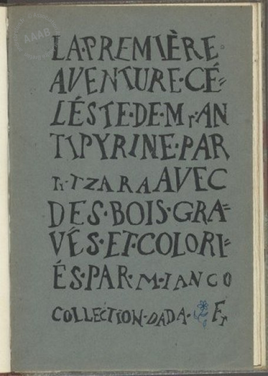 LA·PREMIÈRE·
AVENTURE·CÉ=
LÉSTE·DE·Mr·AN
TIPYRINE·PAR
Tr·TZARA AVEC
DES·BOIS·GRA=
VÉS·ET·COLORI=
ÉS·PAR·M·IANCO
COLLECTION·DADA·